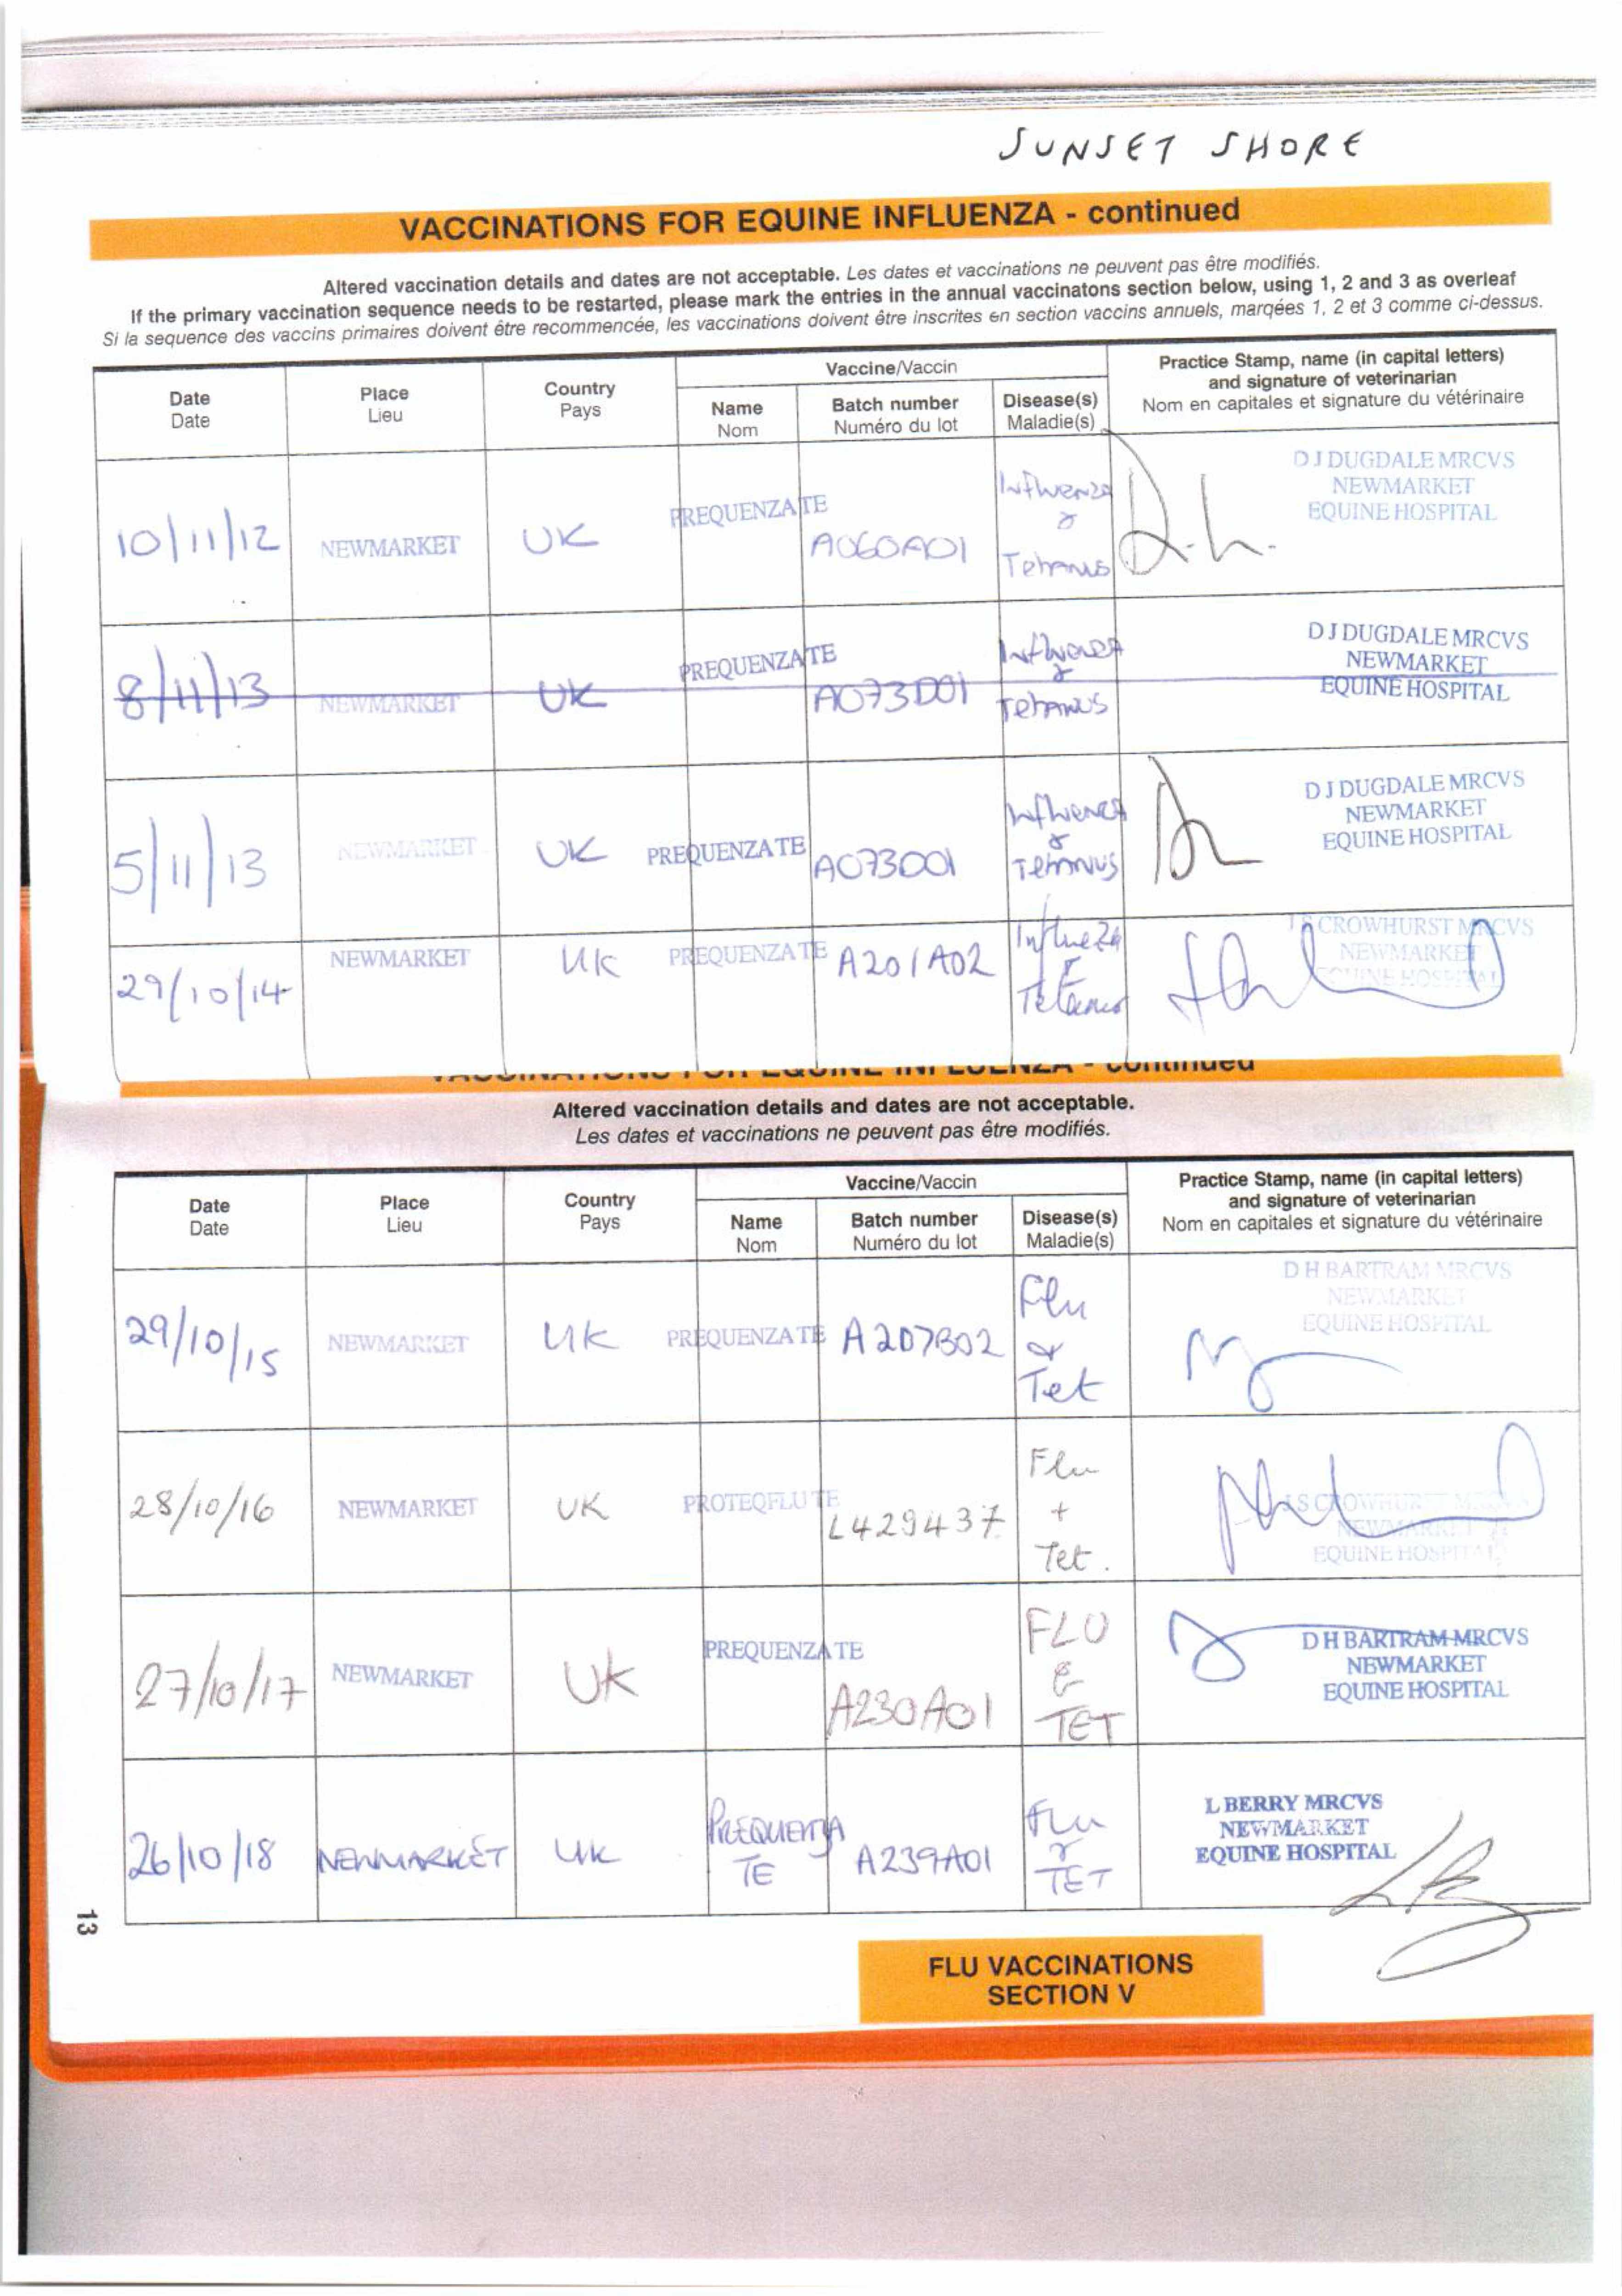 SUNSET SHORE
VACCINATIONS FOR EQUINE INFLUENZA - continued
Altered vaccination details and dates are not acceptable. Les dates et vaccinations ne peuvent pas être modifiés.
If the primary vaccination sequence needs to be restarted, please mark the entries in the annual vaccinatons section below, using 1, 2 and 3 as overleaf
Si la sequence des vaccins primaires doivent être recommencée, les vaccinations doivent être inscrites en section vaccins annuels, marqées 1, 2 et 3 comme ci-dessus.
Date
Date
Place
Lieu
Country
Pays
Vaccine/Vaccin
Name
Nom
Batch number
Numéro du lot
Disease(s)
Maladie(s)
Practice Stamp, name (in capital letters)
and signature of veterinarian
Nom en capitales et signature du vétérinaire
10/11/12
NEWMARKET
UK
PREQUENZA TE
A060A01
Influenza
&
Tetanus
D J DUGDALE MRCVS
NEWMARKET
EQUINE HOSPITAL
8/11/13
NEWMARKET
UK
PREQUENZA TE
A073D01
Influenza
&
Tetanus
D J DUGDALE MRCVS
NEWMARKET
EQUINE HOSPITAL
5/11/13
NEWMARKET
UK
PREQUENZA TE
A073D01
Influenza
&
Tetanus
D J DUGDALE MRCVS
NEWMARKET
EQUINE HOSPITAL
29/10/14
NEWMARKET
UK
PREQUENZA TE
A201A02
Influeza
&
Tetanus
CROWHURST MRCVS
NEWMARKET
EQUINE HOSPITAL
VACCINATIONS FOR EQUINE INFLUENZA - continued
Altered vaccination details and dates are not acceptable.
Les dates et vaccinations ne peuvent pas être modifiés.
Date
Date
Place
Lieu
Country
Pays
Vaccine/Vaccin
Name
Nom
Batch number
Numéro du lot
Disease(s)
Maladie(s)
Practice Stamp, name (in capital letters)
and signature of veterinarian
Nom en capitales et signature du vétérinaire
29/10/15
NEWMARKET
UK
PREQUENZA TE
A207B02
Flu
&
Tet
D H BARTRAM MRCVS
NEWMARKET
EQUINE HOSPITAL
28/10/16
NEWMARKET
UK
PROTEQFLU TE
L429437
Flu
+
Tet.
J S CROWHURST MRCVS
NEWMARKET
EQUINE HOSPITAL
27/10/17
NEWMARKET
UK
PREQUENZA TE
A230A01
FLU
&
TET
D H BARTRAM MRCVS
NEWMARKET
EQUINE HOSPITAL
26/10/18
NEWMARKET
UK
PREQUENZA
TE
A239A01
FLU
&
TET
L BERRY MRCVS
NEWMARKET
EQUINE HOSPITAL
13
FLU VACCINATIONS
SECTION V